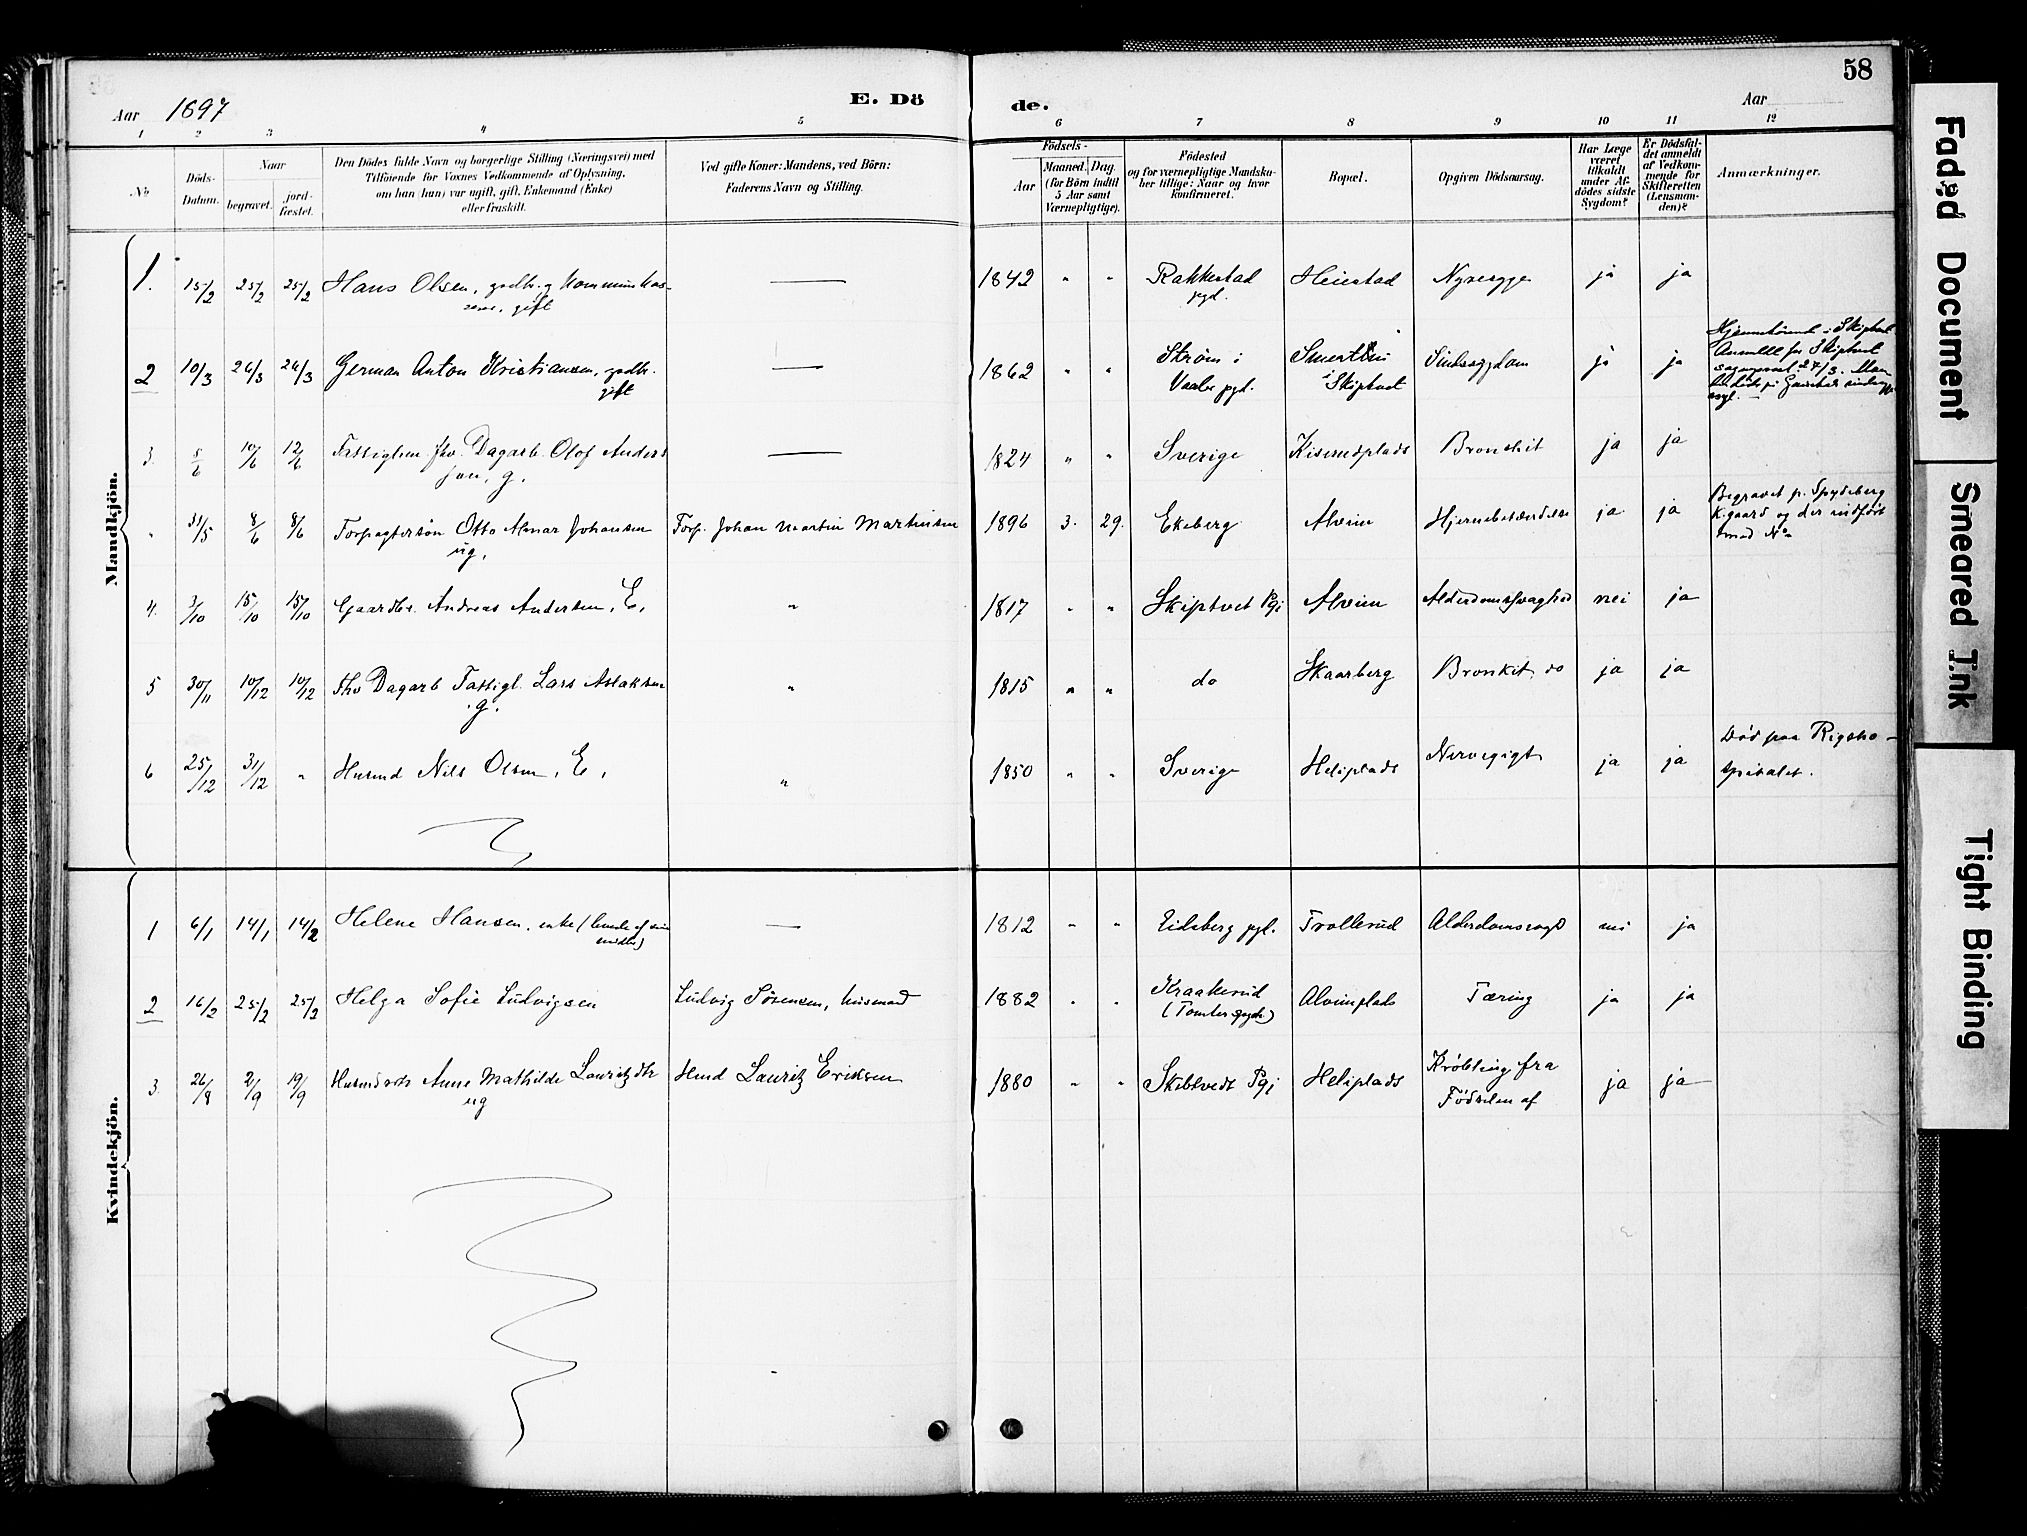 58
Aar 1897
E. Dö
de.
Aar
1 2 3 4 5 6 7 8 9 10 11 12
No
Döds-
Datum.
Naar
begravet.
jord-
fæstet.
Den Dödes fulde Navn og borgerlige Stilling (Næringsvei) med
Tilföiende for Voxnes Vedkommende af Oplysning,
om han (hun) var ugift, gift, Enkemand (Enke)
eller fraskilt.
Ved gifte Koner: Mandens, ved Börn:
Faderens Navn og Stilling.
Födsels-
Aar
Maaned. Dag.
(for Börn indtil
5 Aar samt
Værnepligtige).
Födested
og for værnepligtige Mandska-
ber tillige: Naar og hvor
konfirmeret.
Bopæl.
Opgiven Dödsaarsag.
Har Læge
været
tilkaldt
under Af-
dödes sidste
Sygdom?
Er Dödsfal-
det anmeldt
af Vedkom-
mende for
Skifteretten
(Lensman-
den)?
Anmærkninger.
Mandkjön.
1. 15/2 25/2 25/2 Hans Olsen, gadbr. og Kommunekas-
serer, gift — 1842 " " Rakkestad
pgd. Heiestad Nyresyge ja ja
2 10/3 26/3 26/3 German Anton Kristiansen, gadbr.
gift — 1862 " " Strøm i
Vaaler pgd.
i Skiptvet Sindssygdom ja ja
Hjemmehørende i Skiptvet
Anmeldt for Skiptvet
3. 5/6 10/6 12/6 Fattiglem fhv. Dagarb. Olof Anders
son, g. — 1824 " " Sverige Kiserudplads Bronchit ja ja
" 31/5 8/6 8/6 Forpagtersøn Otto Almar Johansen
ug. Forp. Johan Martin Martinsen 1896 3. 29. Ekeberg Alvim ja ja
Begravet p. Spydeberg
K.gaard og der indført
med No
4. 3/10 15/10 15/10 Gaardbr. Andreas Andersen, E. " 1817 " " Skiptvet Pgj Alvim Alderdomssvaghed nei ja
5 30/11 10/12 10/12 Fhv Dagarb Fattigl. Lars Aslaksen
g. " 1815 " " do Skaarberg Bronkit do ja ja
6 25/12 31/12 " Husmd Nils Olsen, E. " 1850 " " Sverige Heliplads Nervegigt ja ja
Død paa Rigsho-
spitalet.
Kvindekjön.
1 6/1 14/1 14/2 Helene Hansen, enke (levede af sine
midler) — 1812 " " Eidsberg pgl. Trollerud nei ja
2 16/2 25/2 25/2 Helga Sofie Ludvigsen Ludvig Sørensen, husmad 1882 " " Kraakerud
(Tomter sogn) Alvimplads Tæring ja ja
3. 26/8 2/9 19/9 Husmdsdtr Anne Mathilde Lauritzdtr
ug Husmd Lauritz Eriksen 1880 " " Skibtvedt Pgj Heliplads Krøbling fra
Fødselen af ja ja
Faded Document
Smeared Ink
Tight Binding